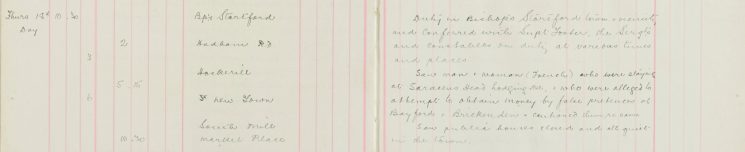 Thurs 1st 10 .30 Bp's Stortford
Day
2 Hadham Rd
3
Hockerill
5 .15
6 & New Town
South Mill
10 .30 Market Place
Duty in Bishop's Stortford town & vicinity
and conferred with Supt Foster, the Sergts
and constables on duty at various times
and places
Saw man & woman (French) who were staying
at Saracens Head Lodging Ho, & who were alleged to
attempt to obtain money by false pretences at
Bayford & Brickendon & cautioned them re same
Saw public houses closed and all quiet
in the town.